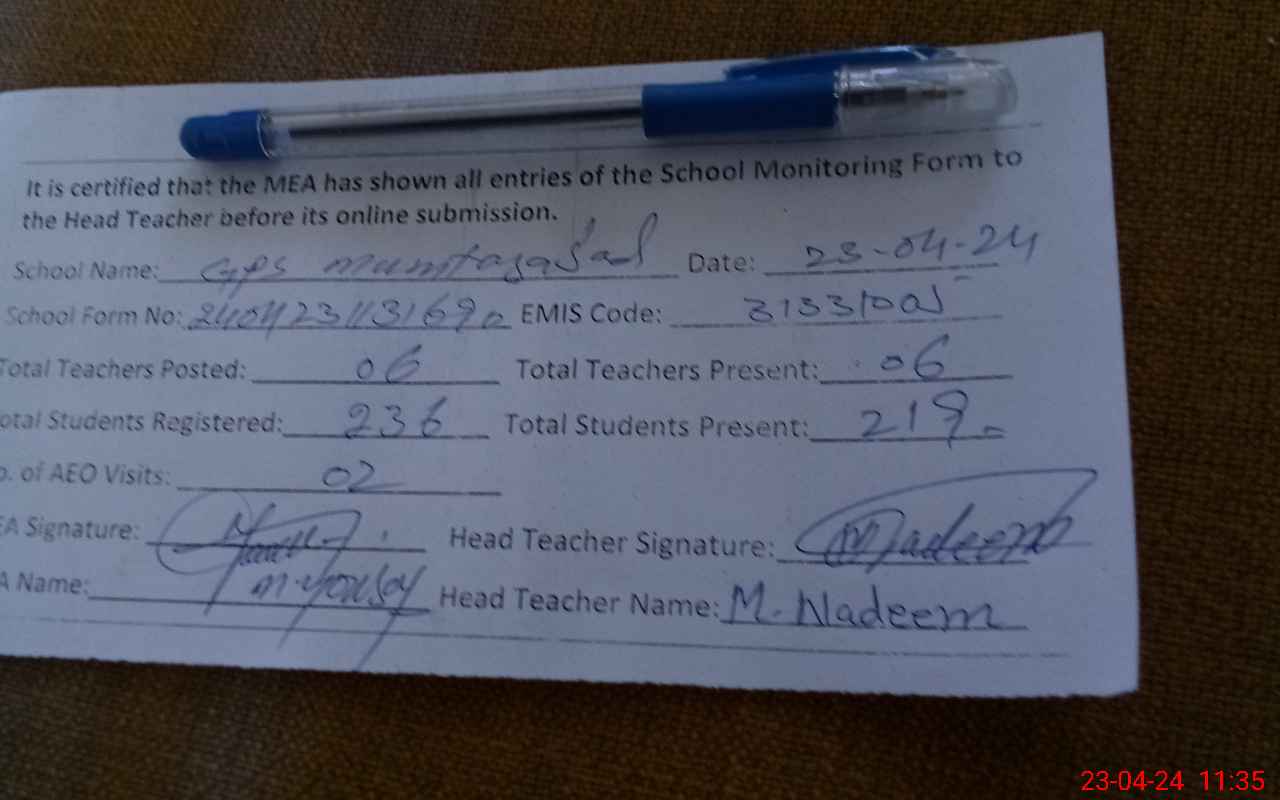 It is certified that the MEA has shown all entries of the School Monitoring Form to
the Head Teacher before its online submission.
School Name: GPS Date: 23-04-24
School Form No: EMIS Code:
Total Teachers Posted: 06 Total Teachers Present: 06
otal Students Registered: 236 Total Students Present: 219
o. of AEO Visits: 02
EA Signature: Head Teacher Signature: M Nadeem
A Name: Head Teacher Name: M. Nadeem
23-04-24 11:35